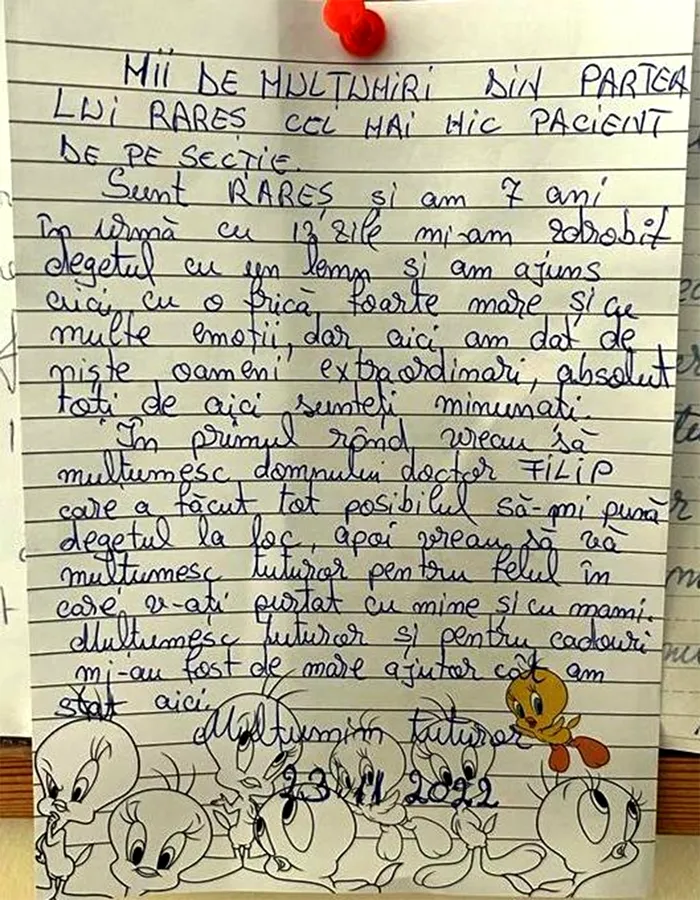 MII DE MULȚUMIRI DIN PARTEA
LUI RAREȘ CEL MAI MIC PACIENT
DE PE SECȚIE.
Sunt RAREȘ și am 7 ani
în urmă cu 13 zile mi-am zdrobit
degetul cu un lemn și am ajuns
aici, cu o frică foarte mare și cu
multe emoții, dar aici am dat de
niște oameni extraordinari, absolut
toți de aici sunteți minunați.
În primul rând vreau să
mulțumesc domnului doctor FILIP
care a făcut tot posibilul să-mi pună
degetul la loc, apoi vreau să vă
mulțumesc tuturor pentru felul în
care v-ați purtat cu mine și cu mami.
Mulțumesc tuturor și pentru cadouri
mi-au fost de mare ajutor cât am
stat aici.
Mulțumim tuturor
23.11.2022